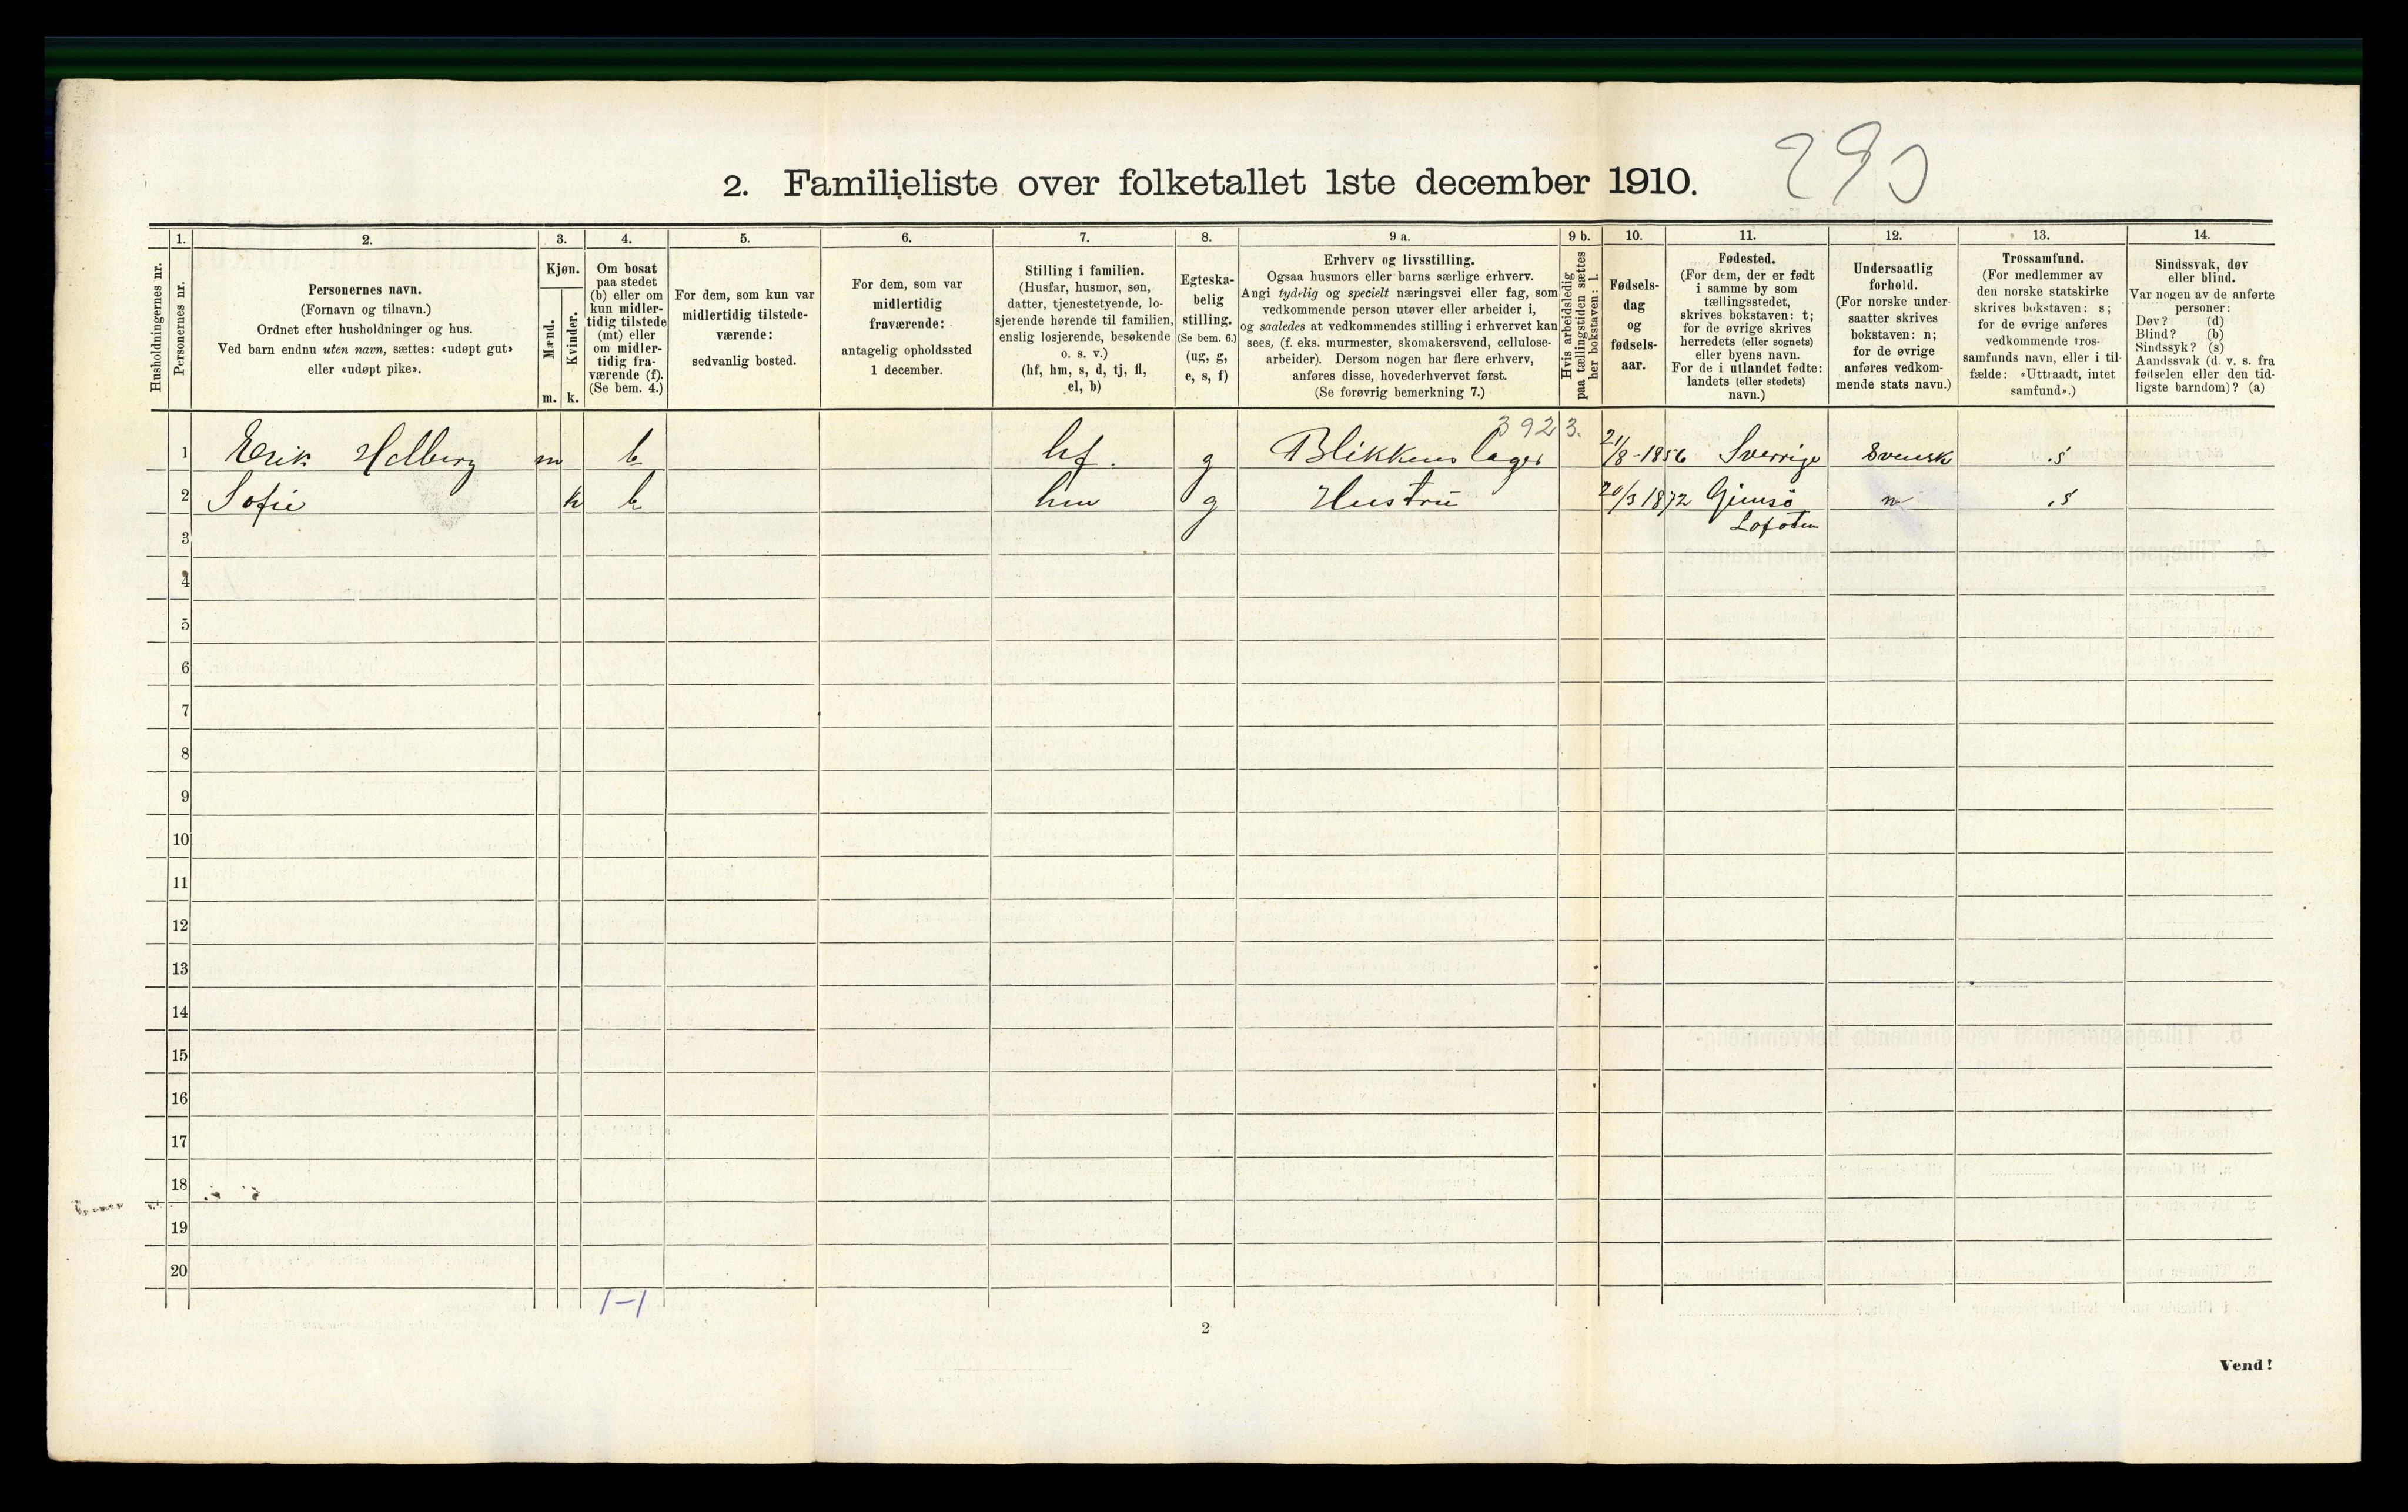 2. Familieliste over folketallet 1ste december 1910.
Husholdningernes nr.
1.
Personernes nr.
2.
Personernes navn.
(Fornavn og tilnavn.)
Ordnet efter husholdninger og hus.
Ved barn endnu uten navn, sættes: «udøpt gut»
eller «udøpt pike».
3.
Kjøn.
Mænd.
Kvinder.
m. k.
4.
Om bosat
paa stedet
(b) eller om
kun midler-
tidig tilstede
(mt) eller
om midler-
tidig fra-
værende (f).
(Se bem. 4.)
5.
For dem, som kun var
midlertidig tilstede-
værende:
sedvanlig bosted.
6.
For dem, som var
midlertidig
fraværende:
antagelig opholdssted
1 december.
7.
Stilling i familien.
(Husfar, husmor, søn,
datter, tjenestetyende, lo-
sjerende hørende til familien,
enslig losjerende, besøkende
o. s. v.)
(hf, hm, s, d, tj, fl,
el, b)
8.
Egteska-
belig
stilling.
(Se bem. 6.)
(ug, g,
e, s, f)
9 a.
Erhverv og livsstilling.
Ogsaa husmors eller barns særlige erhverv.
Angi tydelig og specielt næringsvei eller fag, som
vedkommende person utøver eller arbeider i,
og saaledes at vedkommendes stilling i erhvervet kan
sees, (f. eks. murmester, skomakersvend, cellulose-
arbeider). Dersom nogen har flere erhverv,
anføres disse, hovederhvervet først.
(Se forøvrig bemerkning 7.)
9 b.
Hvis arbeidsledig
paa tællingstiden sættes
her bokstaven: l.
10.
Fødsels-
dag
og
fødsels-
aar.
11.
Fødested.
(For dem, der er født
i samme by som
tællingsstedet,
skrives bokstaven: t;
for de øvrige skrives
herredets (eller sognets)
eller byens navn.
For de i utlandet fødte:
landets (eller stedets)
navn.)
12.
Undersaatlig
forhold.
(For norske under-
saatter skrives
bokstaven: n;
for de øvrige
anføres vedkom-
mende stats navn.)
13.
Trossamfund.
(For medlemmer av
den norske statskirke
skrives bokstaven: s;
for de øvrige anføres
vedkommende tros-
samfunds navn, eller i til-
fælde: «Uttraadt, intet
samfund».)
14.
Sindssvak, døv
eller blind.
Var nogen av de anførte
personer:
Døv? (d)
Blind? (b)
Sindssyk? (s)
Aandssvak (d. v. s. fra
fødselen eller den tid-
ligste barndom)? (a)
3923.
1 Erik Holberg m b hf. g Blikkenslager 21/8-1856 Sverrige Svensk s
2 Sofie k b hm g Hustru 20/3 1872 Gimsö n s
Lofoten
3
4
5
6
7
8
9
10
11
12
13
14
15
16
17
18
19
20
1-1
2
Vend!